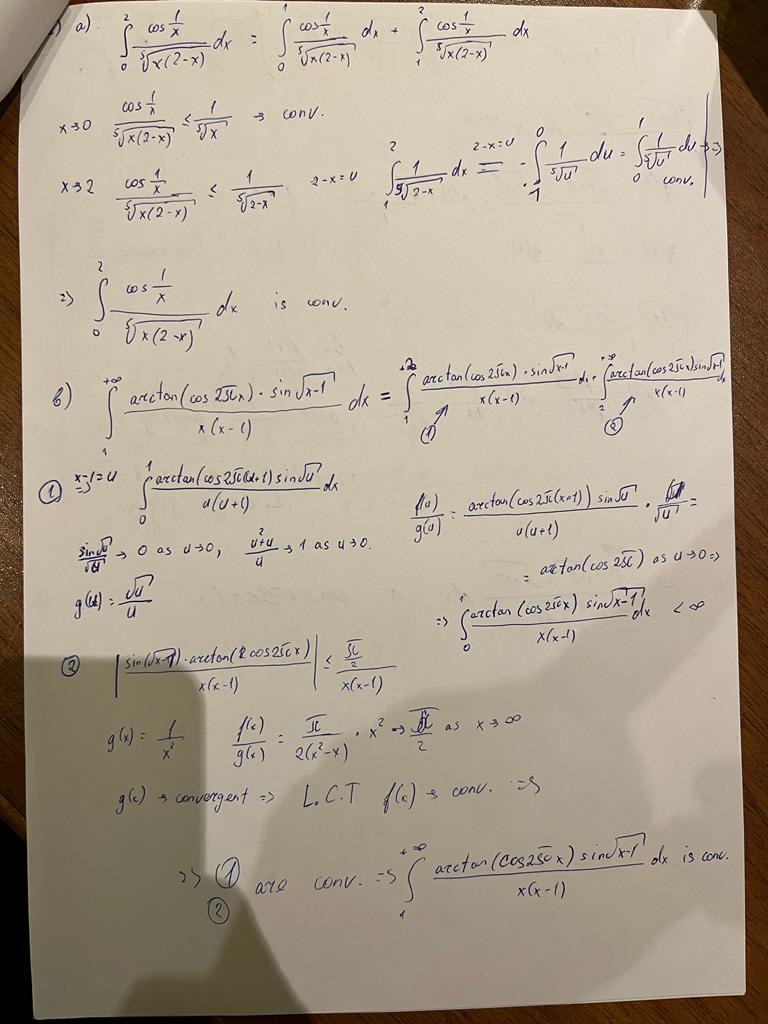 a). ∫₀² cos(1/x) / ⁵√(x(2-x)) dx = ∫₀¹ cos(1/x) / ⁵√(x(2-x)) dx + ∫₁² cos(1/x) / ⁵√(x(2-x)) dx
x→0 cos(1/x) / ⁵√(x(2-x)) ≤ 1/⁵√x → conv.
x→2 cos(1/x) / ⁵√(x(2-x)) ≤ 1/⁵√(2-x) 2-x=u ∫₁² 1/⁵√(2-x) dx =(2-x=u) -∫₁⁰ 1/⁵√u du = ∫₀¹ 1/⁵√u du → conv. ⇒
⇒ ∫₀² cos(1/x) / ⁵√(x(2-x)) dx is conv.
b) ∫₁^{+∞} arctan(cos2πx)·sin√(x-1) / x(x-1) dx = ∫₁^{+2} arctan(cos2πx)·sin√(x-1) / x(x-1) dx + ∫₂^{+∞} arctan(cos2πx)sin√(x-1) / x(x-1) dx
① ②
① x-1=u ⇒ ∫₀¹ arctan(cos2π(u+1)) sin√u / u(u+1) dx
sin√u/√u → 0 as u→0, (u²+u)/u → 1 as u→0.
g(u) = √u/u
f(u)/g(u) = arctan(cos2π(x+1)) sin√u / u(u+1) · u/√u =
= arctan(cos2π) as u→0 ⇒
⇒ ∫₀¹ arctan(cos2πx) sin√(x-1) / x(x-1) dx < ∞
② |sin(√(x-1))·arctan(2cos2πx) / x(x-1)| ≤ (π/2) / x(x-1)
g(x) = 1/x² f(x)/g(x) = π / 2(x²-x) · x² → π/2 as x→∞
g(x) → convergent ⇒ L.C.T f(x) → conv. ⇒
⇒ ① ② are conv. ⇒ ∫₁^{+∞} arctan(cos2πx) sin√(x-1) / x(x-1) dx is conv.